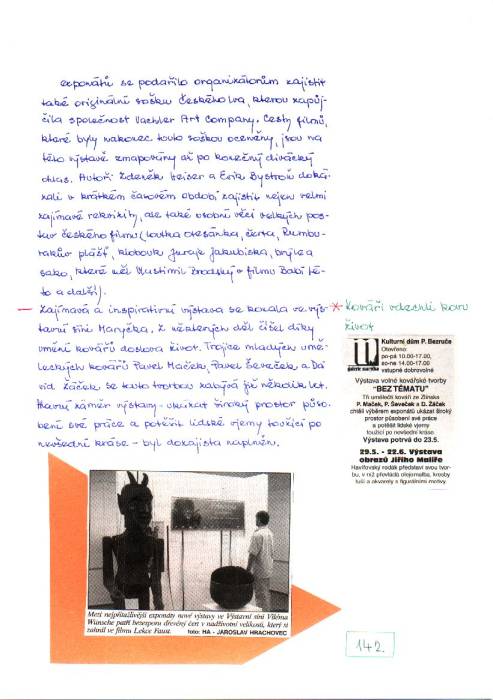 exponátů se podařilo organizátorům zajistit
také originální sošku Českého lva, kterou zapůj-
čila společnost Vachler Art Company. Cesty filmů,
které byly nakonec touto soškou oceněny, jsou na
této výstavě zmapovány až po konečný divácký
ohlas. Autoři Zdeněk Hejser a Erik Bystroň doká-
zali v krátkém časovém období zajistit nejen velmi
zajímavé rekvizity, ale také osobní věci velkých pos-
tav českého filmu (loutka otesánka, čerta, Rumbu-
rakův plášť, klobouk Juraje Jakubiska, brýle a
sako, které měl Vlastimil Brodský v filmu Babí lé-
to a další).
— Zajímavá a inspirativní výstava se konala ve výs-
tavní síni Maryčka. Z některých děl čišel díky
umění kovářů doslova život. Trojice mladých umě-
leckých kovářů Pavel Maček, Pavel Ševeček a Da-
vid Žáček se touto tvorbou zabývá již několik let.
Hlavní záměr výstavy - ukázat široký prostor působ-
ení své práce a potěšit lidské vjemy toužící po
nevšední kráse - byl dokázista naplněn.
* Kováři vdechli kovu
život
Kulturní dům P. Bezruče
Otevřeno:
po-pá 10.00-17.00,
so-ne 14.00-17.00
vstupné dobrovolné
galerie maryčka
Výstava volné kovářské tvorby
"BEZ TÉMATU"
Tři umělečtí kováři ze Zlínska
P. Maček, P. Ševeček a D. Žáček
chtěli výběrem exponátů ukázat široký
prostor působení své práce
a potěšit lidské vjemy
toužící po nevšední kráse
Výstava potrvá do 23.5.
29.5. - 22.6. Výstava
obrazů Jiřího Maliře
Havířovský rodák představí svou tvor-
bu, v níž převládá olejomalba, kresby
tuší a akvarely s figurálními motivy.
Mezi nejpřitažlivější exponáty nové výstavy ve Výstavní síni Viléma
Wünsche patří bezesporu dřevěný čert v nadživotní velikosti, který si
zahrál ve filmu Lekce Faust. foto: HA - JAROSLAV HRACHOVEC
142.